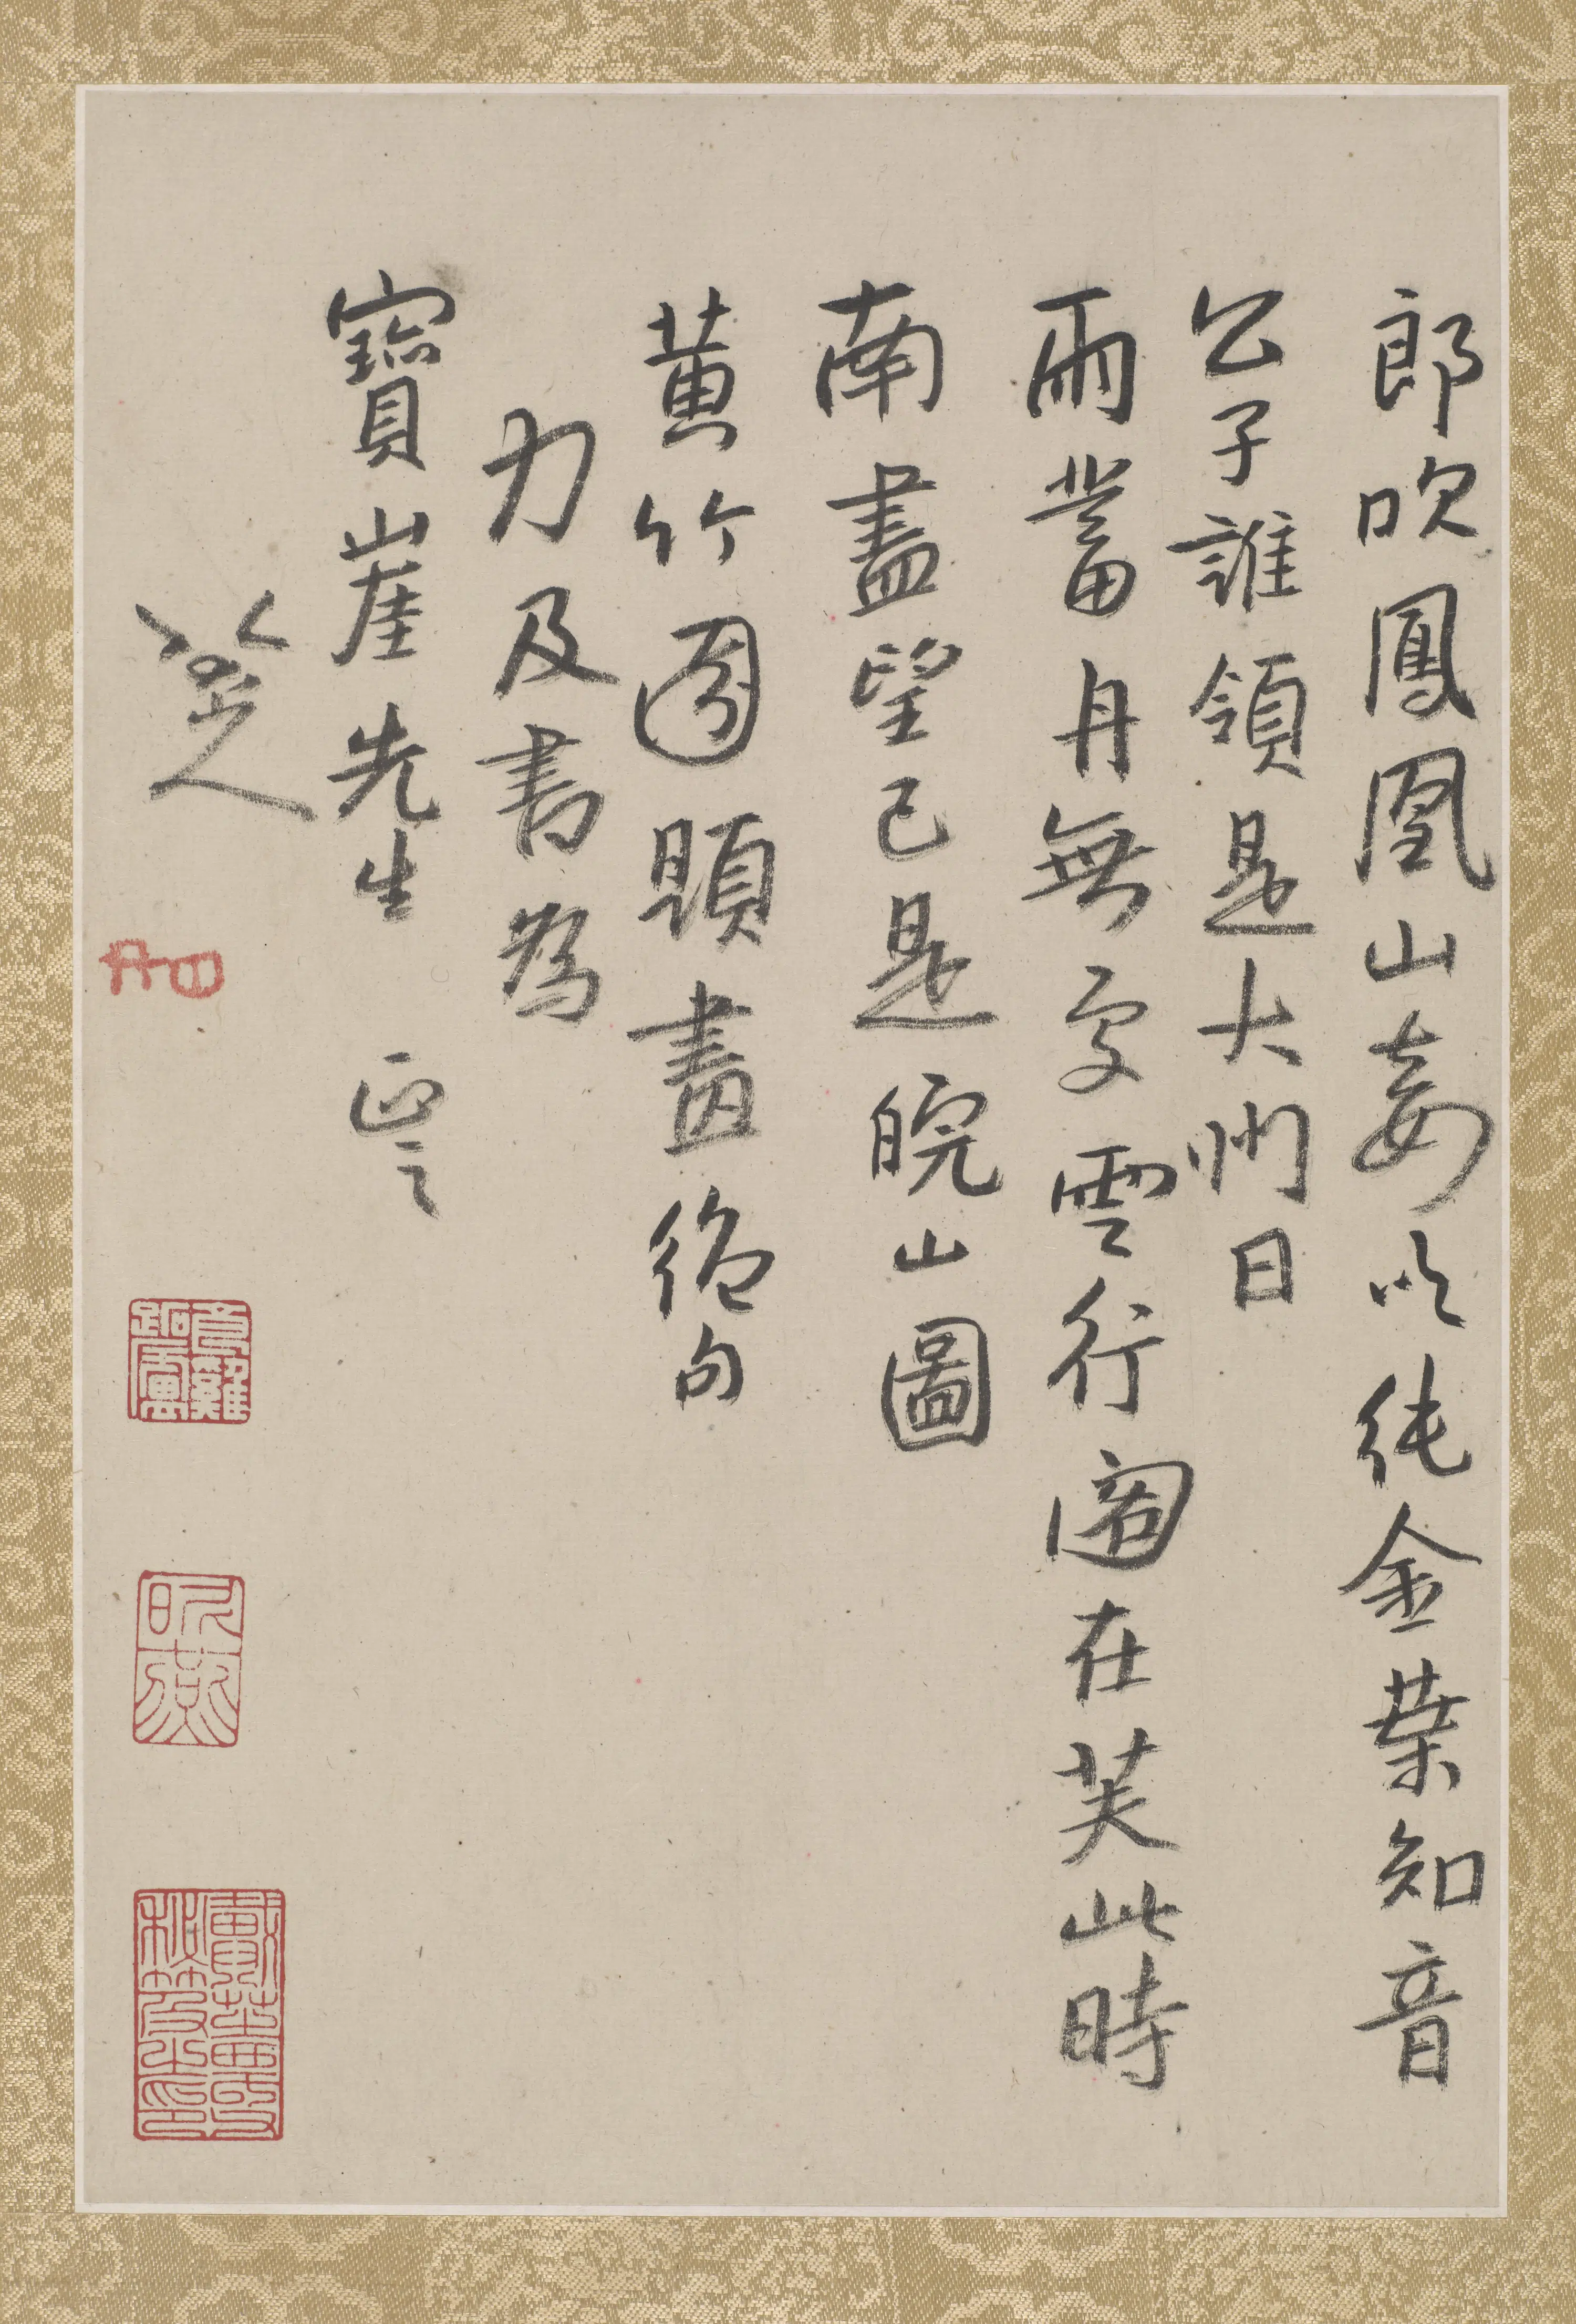 郎吹鳳凰山妾吹純金葉知音
公子誰領是大州日
雨蓄舟無處雲行閣在芙此時
南盡望已是皖山圖
黄竹園題畫絕句
力及書為
寶崖先生 正之
八大山人